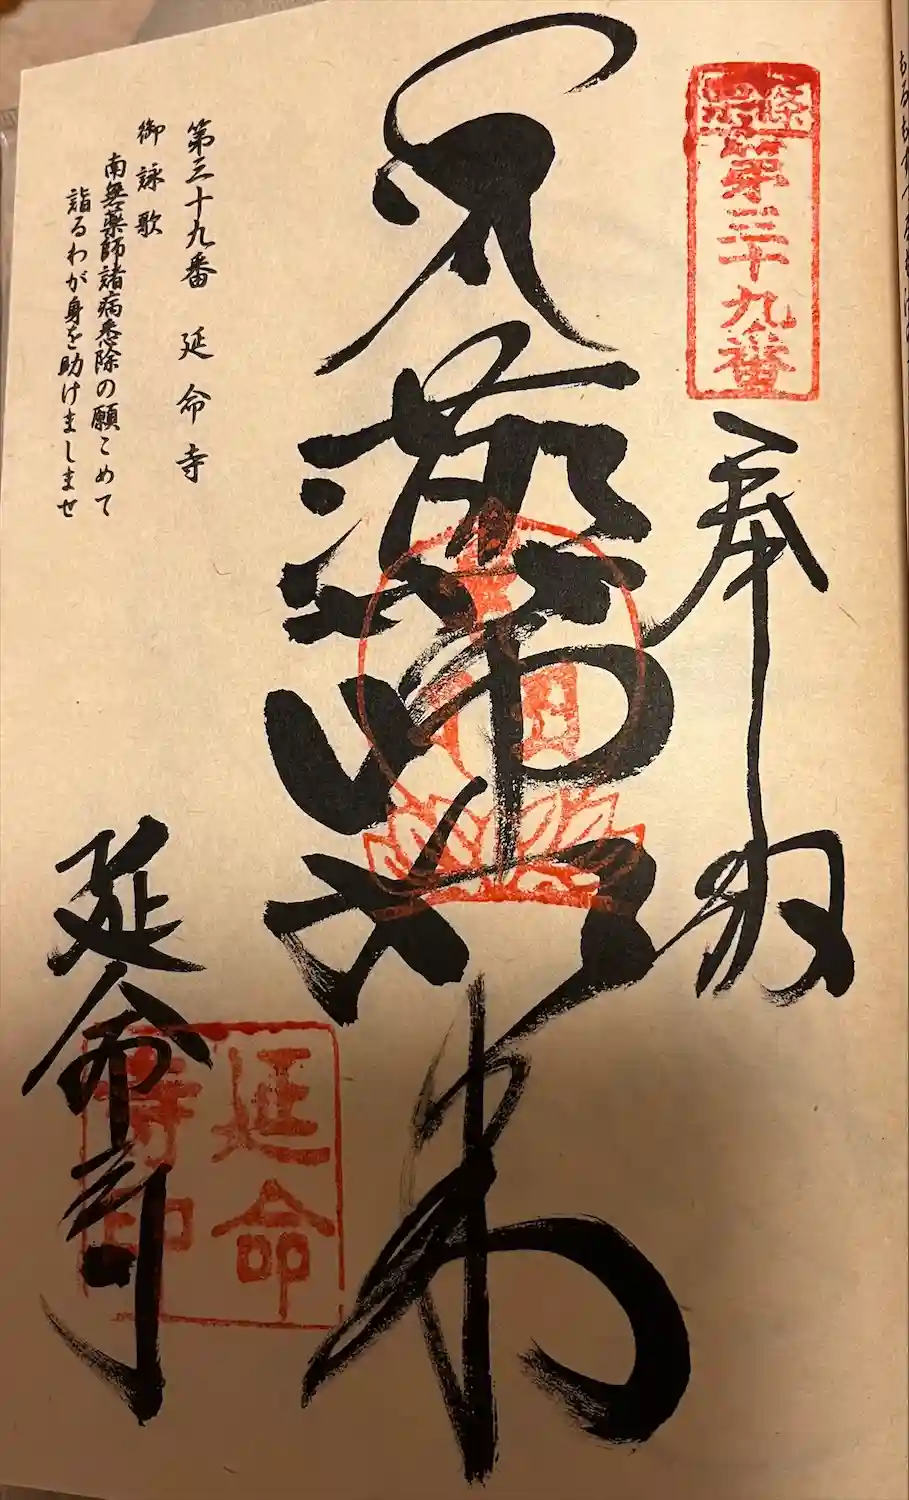 第三十九番
奉納
薬師如来
延命寺
延命寺印
第三十九番　延命寺
御詠歌
南無薬師諸病悉除の願こめて
詣るわが身を助けましませ